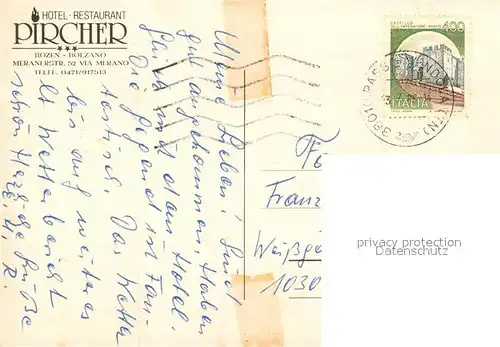 HOTEL - RESTAURANT
PIRCHER
BOZEN - BOLZANO
MERANERSTR. 52 VIA MERANO
TELEF. 0471/917513
Meine Lieben! Sind
gut angekommen. Haben
Hotel.
Die Gegend ist Fan-
tastisch. Das Wetter
bis auf weiteres
lt. Wetterbericht
schön. Herzliche Grüße
CASTELLO
DELL'IMPERATORE - PRATO
400
ITALIA
38010
Franz
1030
privacy protection
Datenschutz